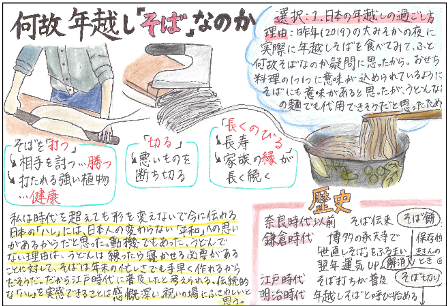 何故年越し「そば」なのか
選択:1.日本の年越しの過ごし方
理由:昨年(2019)の大みそかの夜に
実際に年越しそばを食べてみて、ふと
何故そばなのか疑問に思ったから。おせち
料理の1つ1つに意味が込められているように
そばにも意味があると思ったが、うどんなど
の麺でも代用できそうだと思ったため
そばを「打つ」
相手を討つ…勝つ
打たれ強い植物
…健康
「切る」
悪いものを
断ち切る
「長くのびる」
長寿
家族の縁が
長く続く
歴史
奈良時代以前 そば伝来 そば(餅)
鎌倉時代 博多の承天寺で
世直しそばをふるまい
翌年運気UP
江戸時代 そば打ちが普及 そば切り
明治時代 年越しそばと呼び始める
私は時代を超えても形を変えないで今に伝わる
日本の「ハレ」には、日本人の変わらない「平和」への思い
があるからだと思った。動機でもあった、うどんで
ない理由は、うどんは練ったり寝かせる必要がある
ことに対して、そばは年末の忙しさでも手早く作れるから
だそうだ。だから江戸時代に普及したと考えられる。伝統的
な「ハレ」を実感できることは感慨深い祝いの場にふさわしいと
思う。